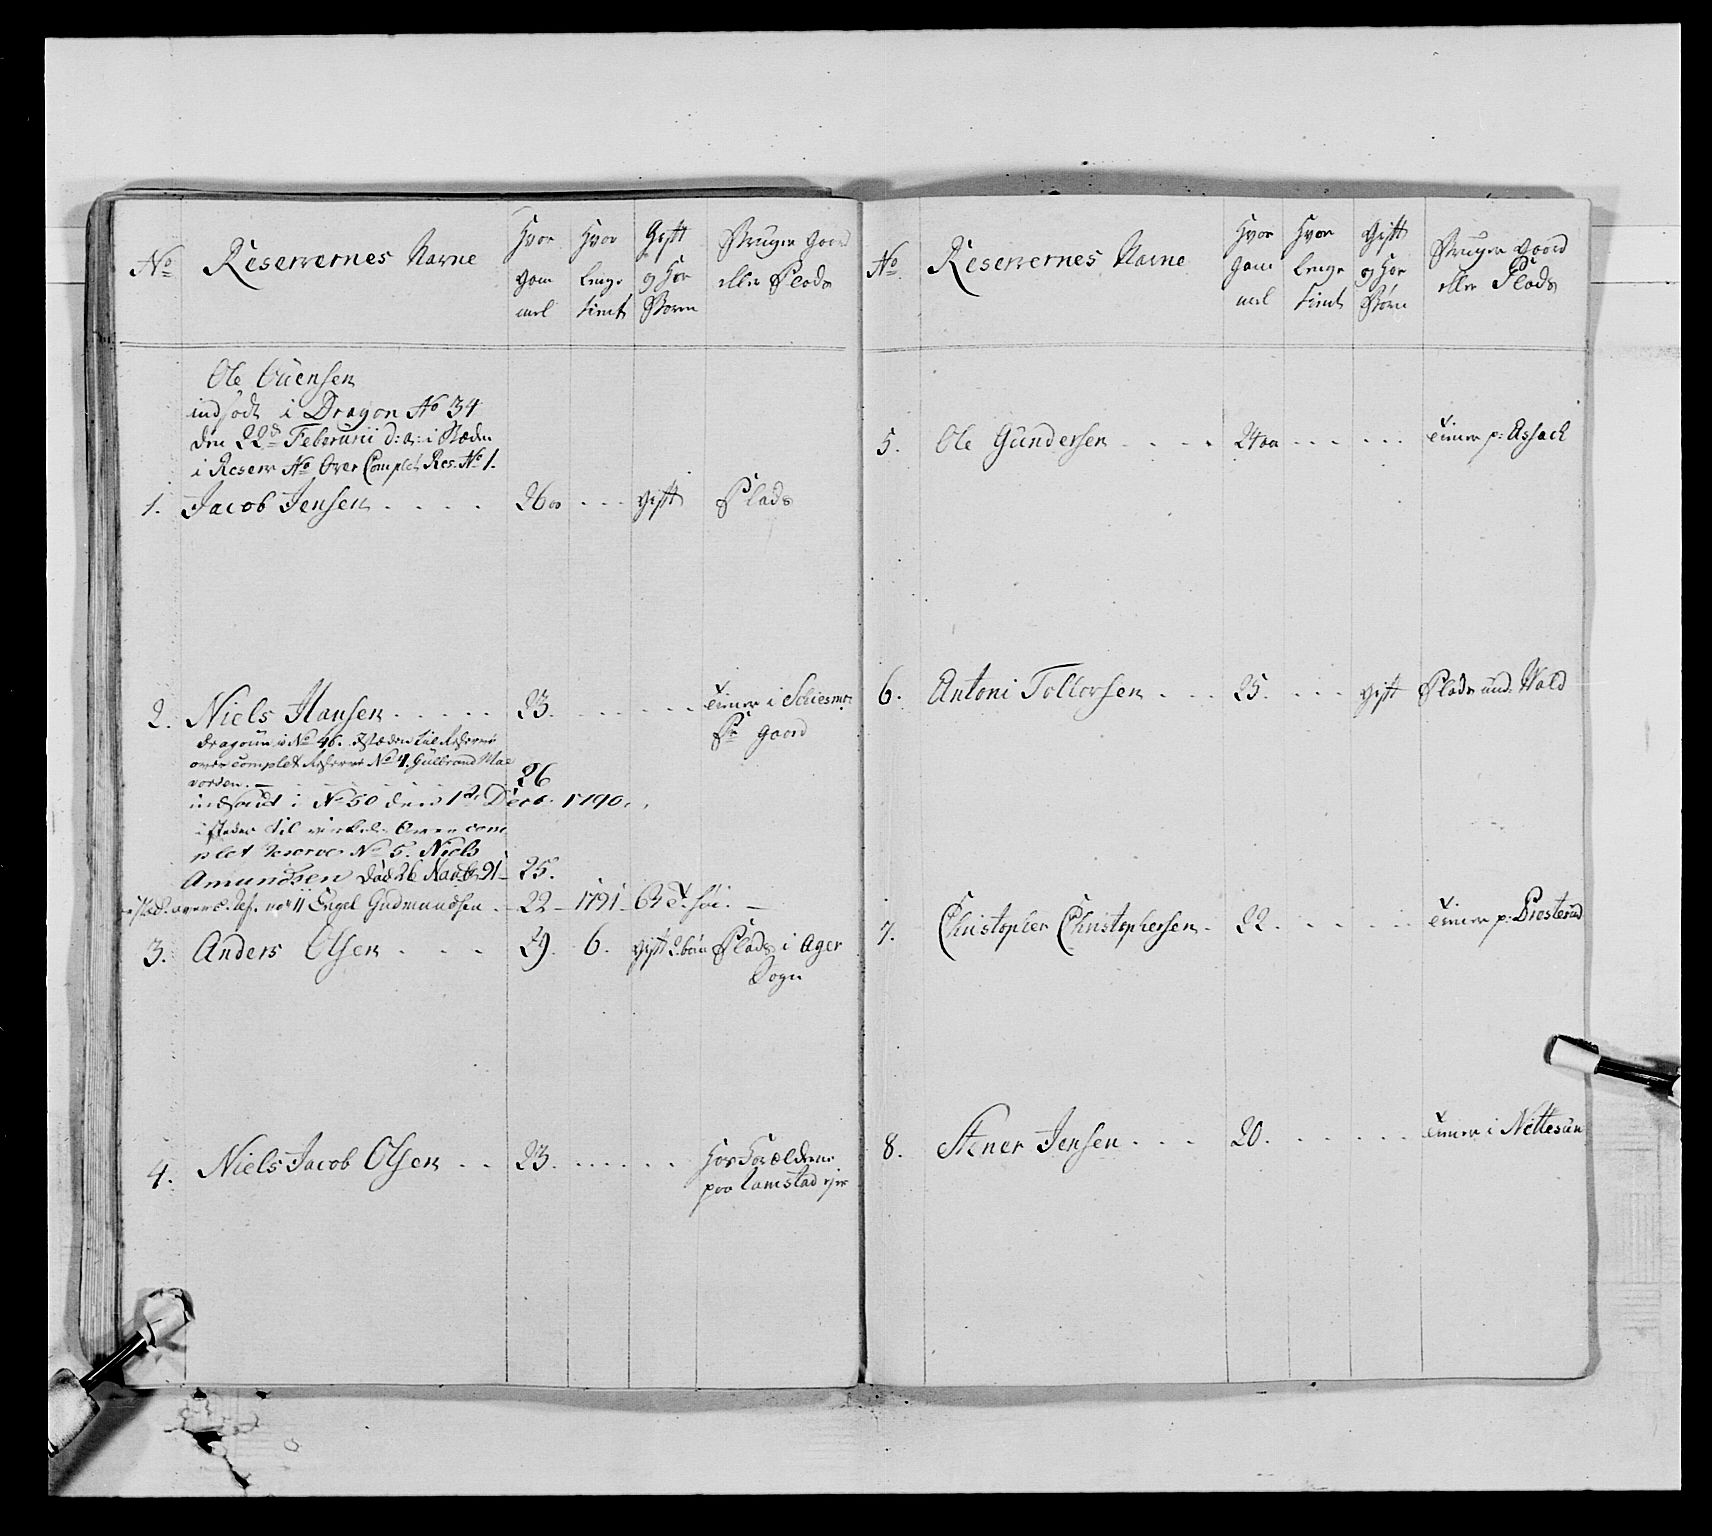 No Reserrernes Navne Hvor gam mel Hvor lenge tient Gift og hor Børn Bruger Gaard eller Plads
Ole Evensen
indsødt i Dragon No 34
den 22de Februarii d: a: i Stæden
i Reserv No Over Complet Res. No 1.
1. Jacob Jensen 26 aar gift Plads
2. Niels Hansen 23. tiener i
Gaard
dragoun i No 46. i Stæden til Reserve
over complet Reserve No 4. Gulbrand
26
indsadt i No 50 den 1de Decb. 1790.
i steden til Over com
plet Reserve No 5. Niels
Amundsen død 26 Novb 91 25.
no 11 Engel Gudmundsen 22 1791
3. Anders Olsen 29. 6. gift 2 børn Plads i Ager
Sogn
4. Niels Jacob Olsen 23. hos Forældrene
paa Ramstad
No Reserrernes Navne Hvor gam mel Hvor lenge tient Gift og hor Børn Bruger Gaard eller Plads
5. Ole Gundersen 24 aar tiener p: Assack
6. Antoni Tollorsen 25. gift Plads und. Wold
7. Christopher Christophersen 22. tiener p: Prosterud
8. Stener Jensen 20. tiener i Nettesun